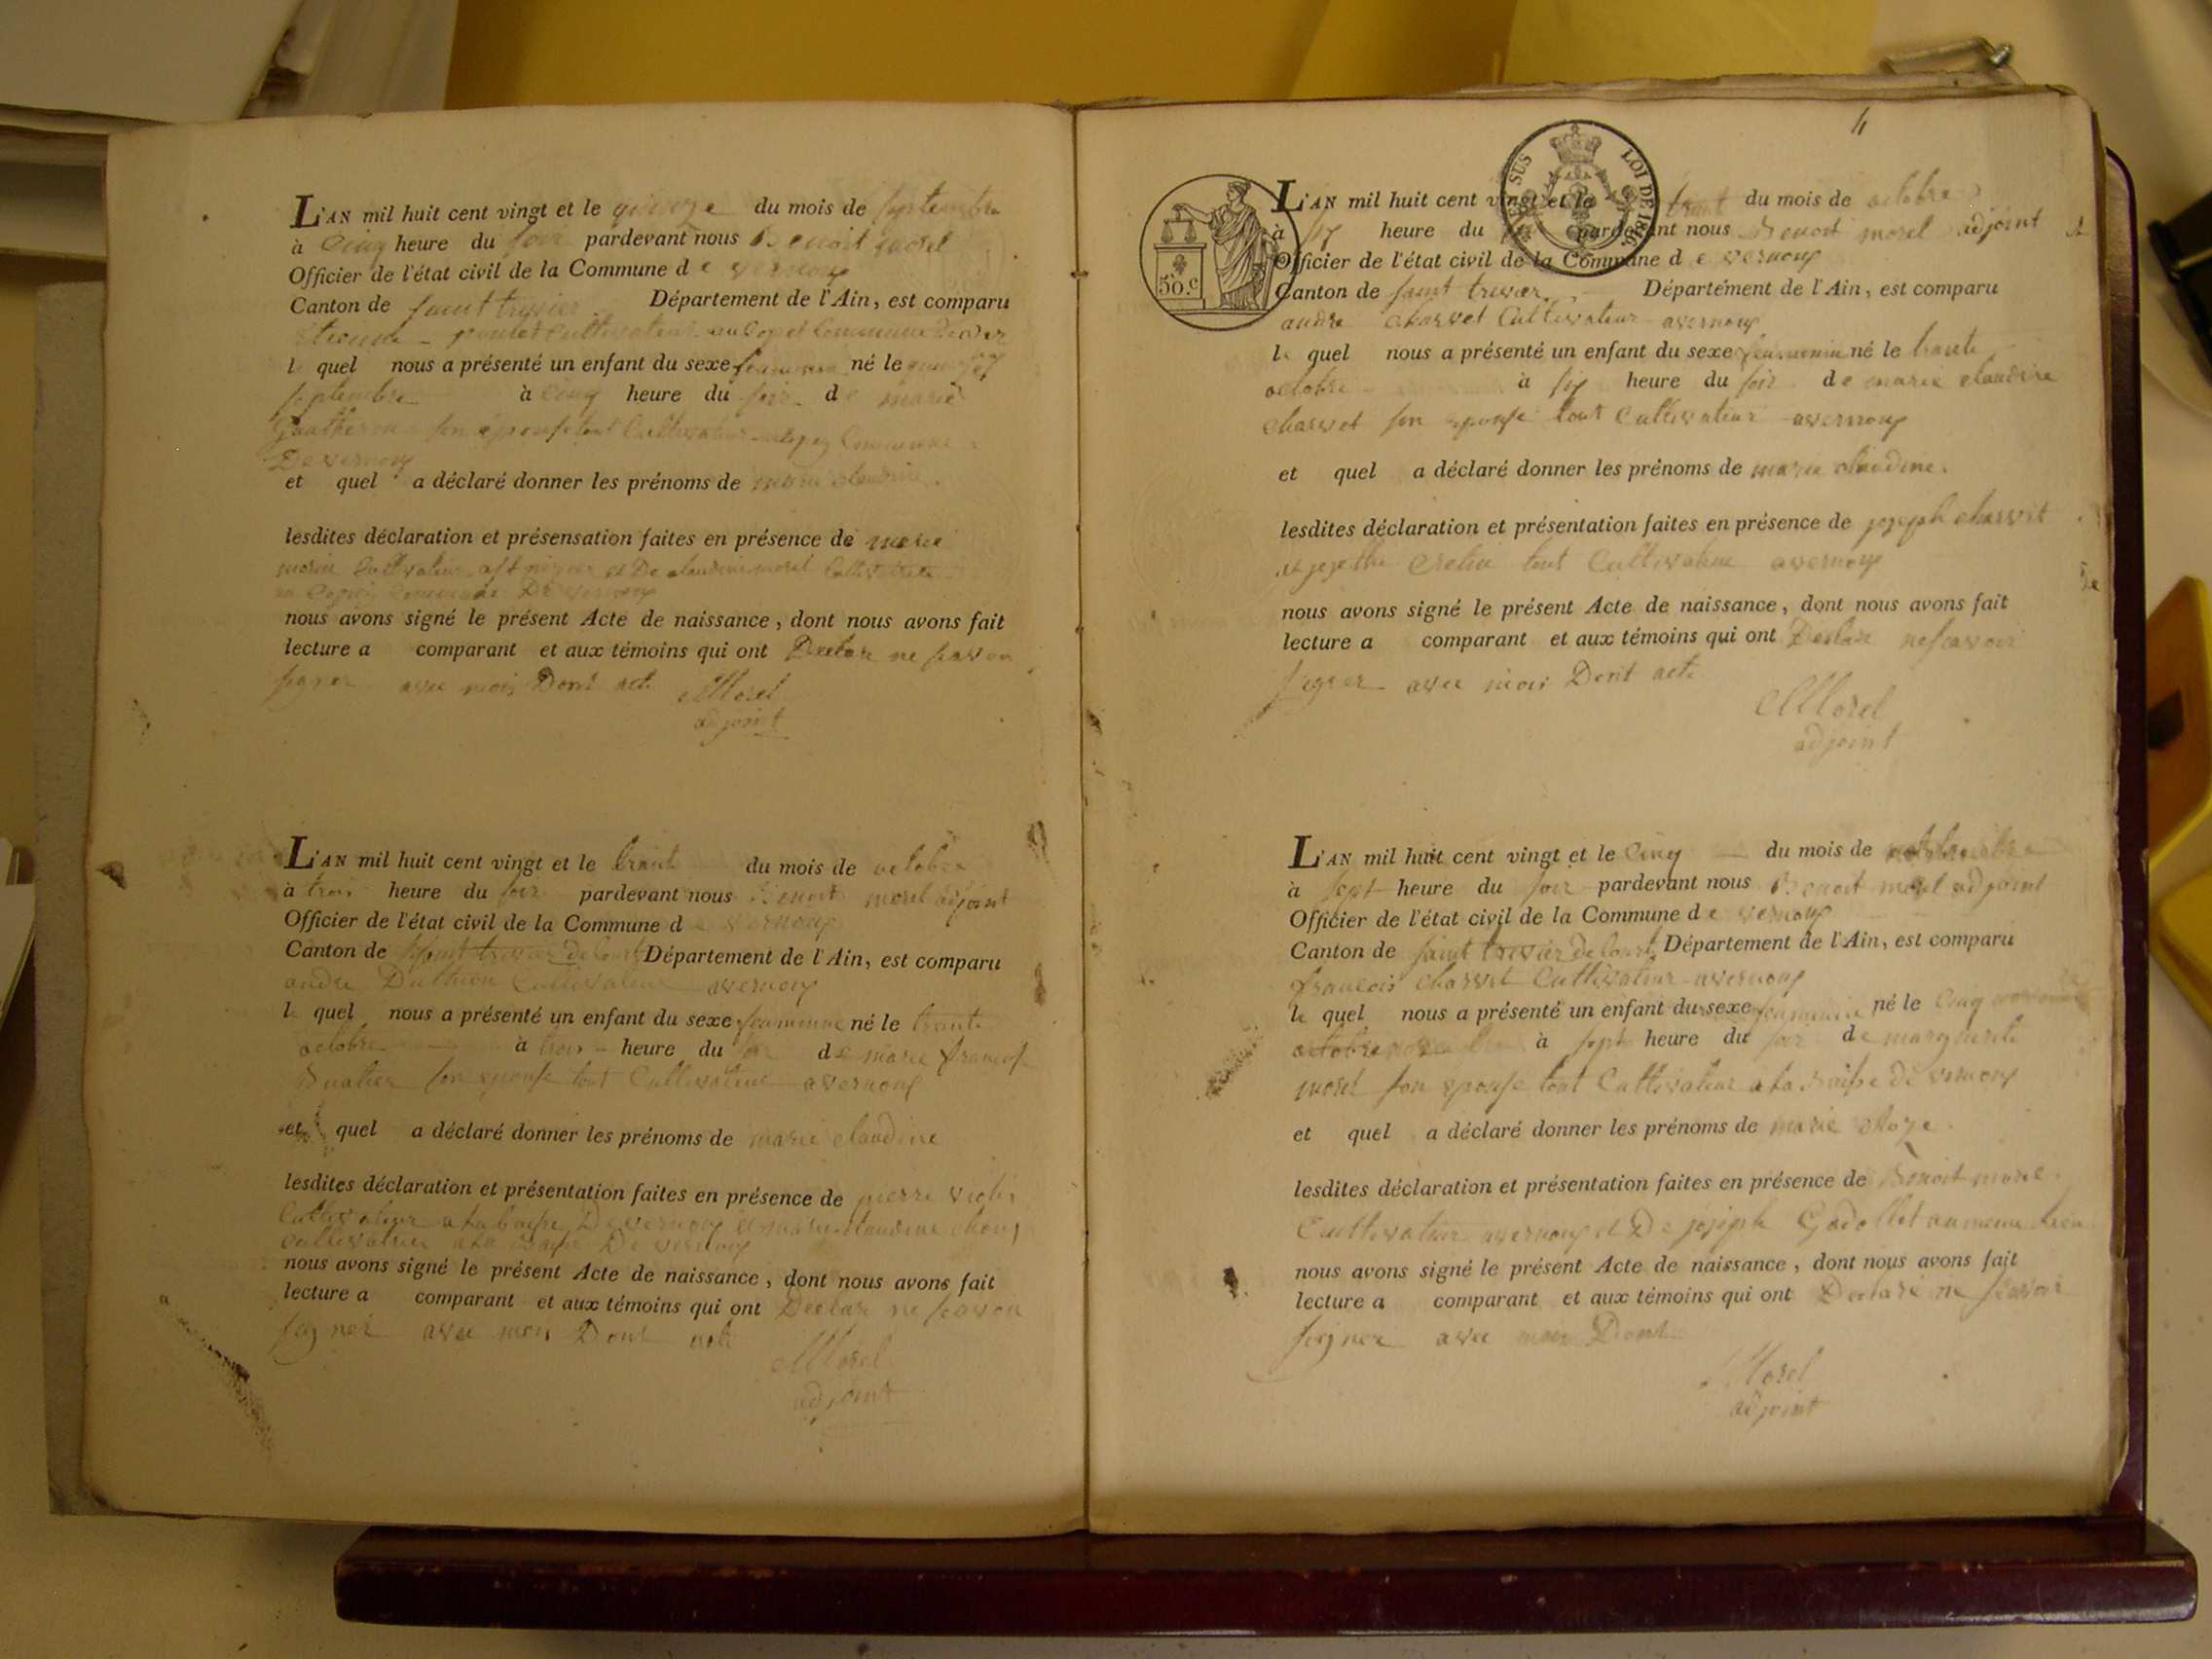 L'AN mil huit cent vingt et le quinze du mois de septembre
à Cinq heure du soir pardevant nous Benoit morel
Officier de l'état civil de la Commune d e vernoux
Canton de saint trivier Département de l'Ain, est comparu
Cultivateur Commune
l quel nous a présenté un enfant du sexe né le
septembre à Cinq heure du soir d e marie
son epouse tout Cultivateur Commune
De vernoux
et quel a déclaré donner les prénoms de marie claudine.
lesdites déclaration et présensation faites en présence de marie
morin et De claudine morel
Commune De vernoux
nous avons signé le présent Acte de naissance, dont nous avons fait
lecture a comparant et aux témoins qui ont Declare ne savoir
signer avec moi Dont acte Morel
adjoint
L'AN mil huit cent vingt et le trente du mois de octobre
à trois heure du soir pardevant nous Benoit morel adjoint
Officier de l'état civil de la Commune d e vernoux
Canton de saint trivier de Département de l'Ain, est comparu
andre Cultivateur avernoux
le quel nous a présenté un enfant du sexe né le trente
octobre à trois heure du soir d e marie
son epouse tout Cultivateur avernoux
et quel a déclaré donner les prénoms de marie claudine
lesdites déclaration et présentation faites en présence de pierre
Cultivateur De vernoux claudine
De vernoux
nous avons signé le présent Acte de naissance, dont nous avons fait
lecture a comparant et aux témoins qui ont Declare ne savoir
signer avec moi Dont acte
Morel
adjoint
4
SUS LOI DE 1816
50.c
L'AN mil huit cent vingt et le du mois de octobre
à six heure du pardevant nous Benoit morel adjoint
Officier de l'état civil de la Commune d e vernoux
Canton de saint trivier Département de l'Ain, est comparu
andre charvet Cultivateur avernoux
le quel nous a présenté un enfant du sexe né le trente
octobre à six heure du soir de marie claudine
charvet son epouse tout Cultivateur avernoux
et quel a déclaré donner les prénoms de marie claudine.
lesdites déclaration et présentation faites en présence de joseph charvet
tout Cultivateur avernoux
nous avons signé le présent Acte de naissance, dont nous avons fait
lecture a comparant et aux témoins qui ont Declare ne savoir
signer avec moi Dont acte
Morel
adjoint
L'AN mil huit cent vingt et le Cinq du mois de
à sept heure du soir pardevant nous Benoit morel adjoint
Officier de l'état civil de la Commune d e vernoux
Canton de saint trivier de Département de l'Ain, est comparu
francois charvet Cultivateur avernoux
le quel nous a présenté un enfant du sexe né le Cinq
octobre à sept heure du soir de marguerite
morel son epouse tout Cultivateur de vernoux
et quel a déclaré donner les prénoms de marie
lesdites déclaration et présentation faites en présence de Benoit morel
Cultivateur avernoux et De joseph
nous avons signé le présent Acte de naissance, dont nous avons fait
lecture a comparant et aux témoins qui ont Declare ne savoir
signer avec moi Dont
Morel
adjoint